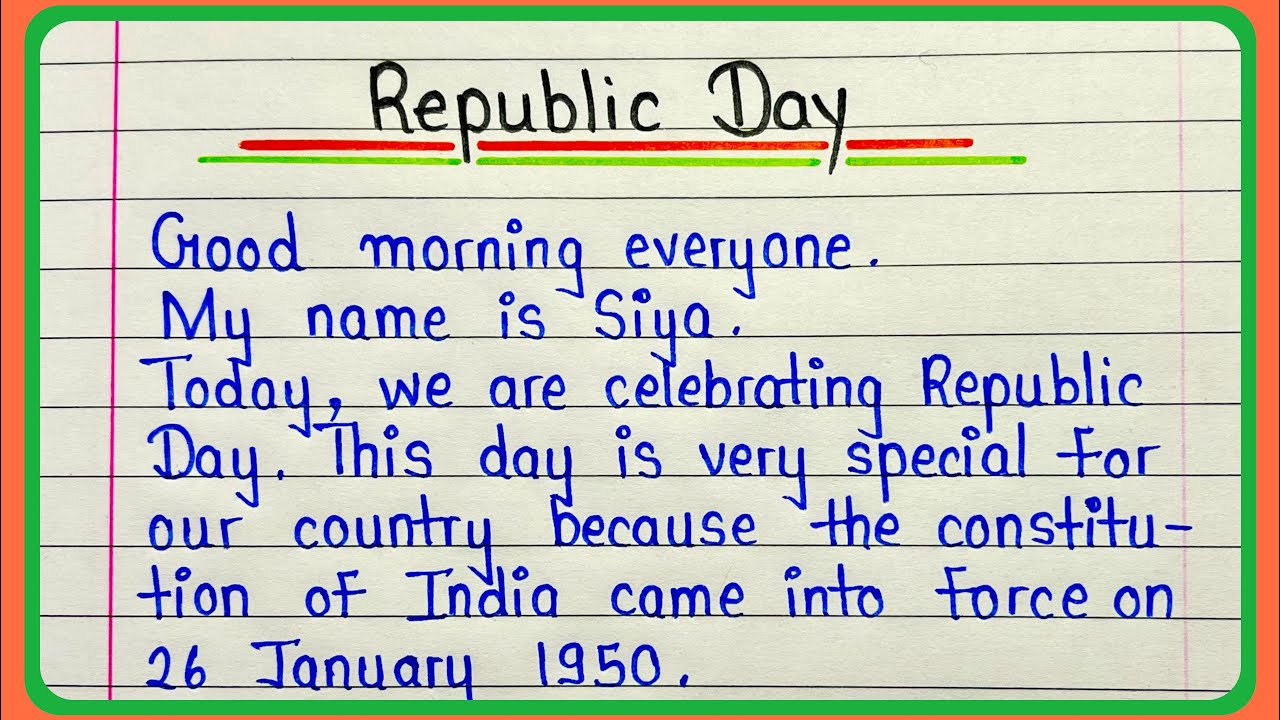 Republic Day
Good morning everyone.
My name is Siya.
Today, we are celebrating Republic
Day. This day is very special for
our country because the constitu-
tion of India came into force on
26 January 1950.